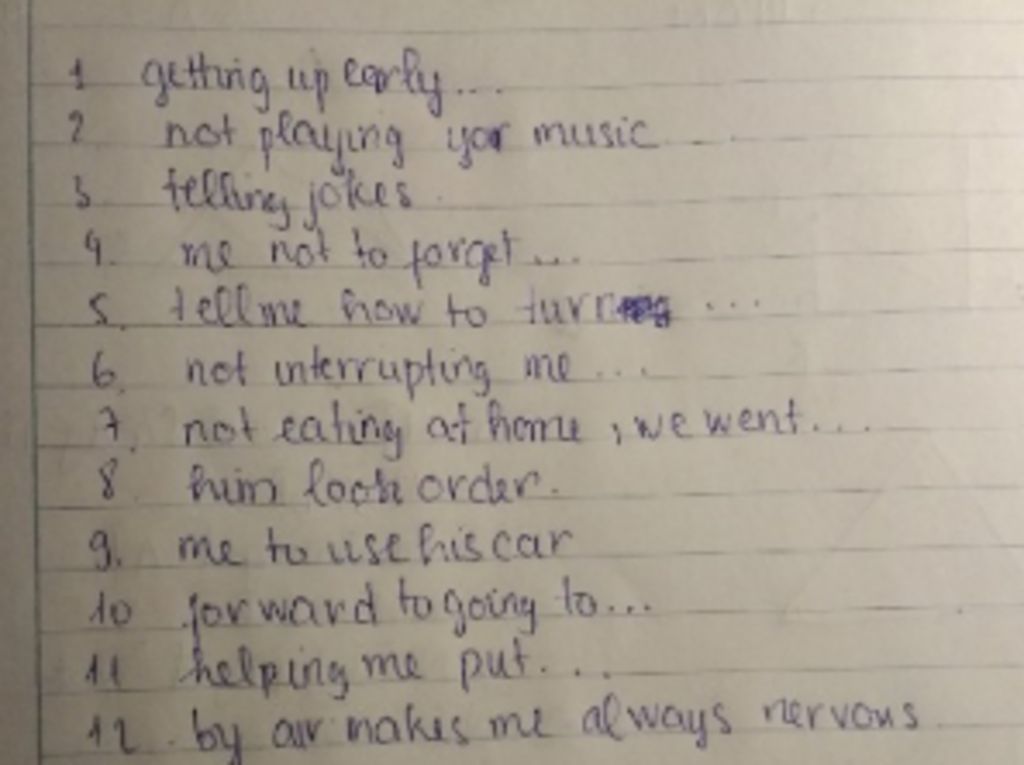 1 getting up early...
2 not playing yor music...
3 telling jokes.
4. me not to forget...
5. tell me how to turn ...
6. not interrupting me ...
7. not eating at home, we went...
8 him look order.
9. me to use his car
10 forward to going to...
11 helping me put...
12. by air makes me always nervous